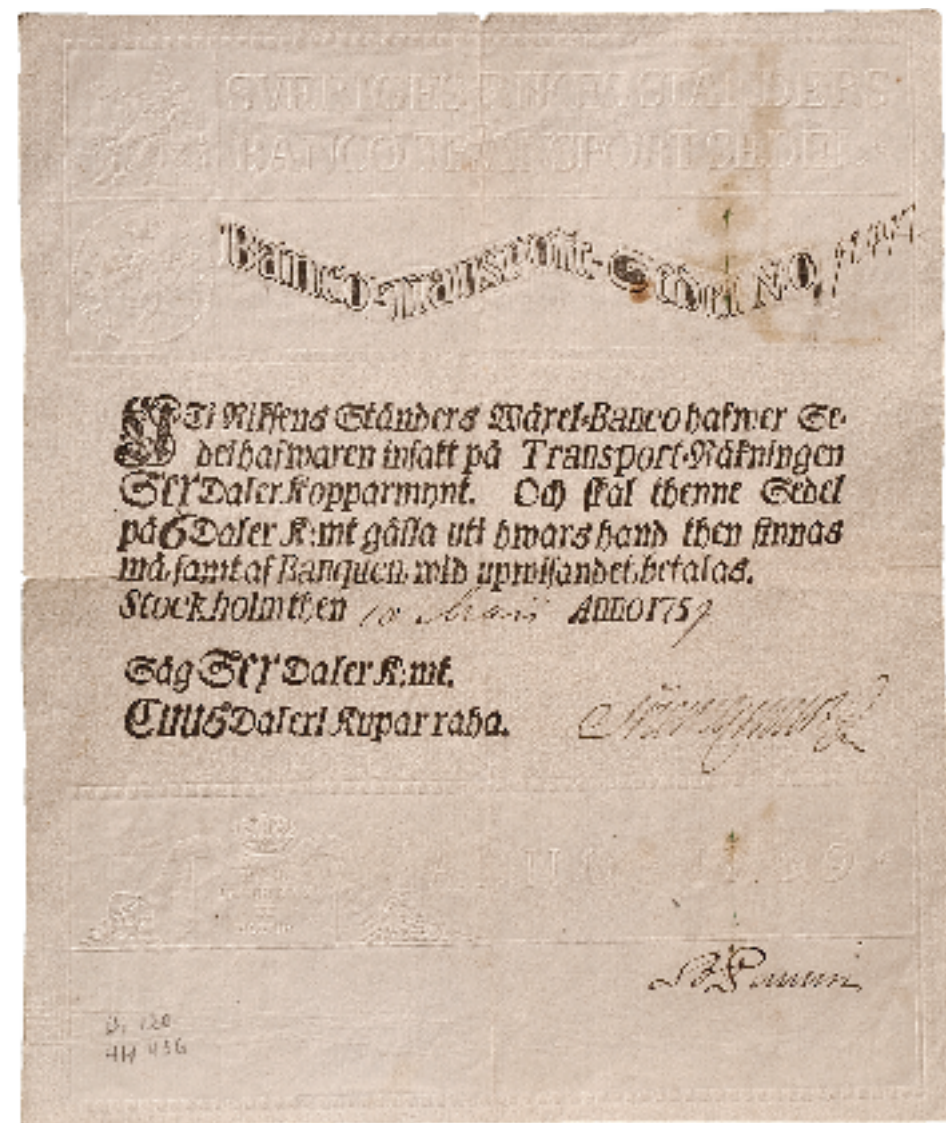 SVERIGES RIKENS STÄNDERS
BANCO TRANSPORT SEDEL
Banco-Transport-Sedel N.O.
UTi Rikſens Ständers Wäxel-Banco hafwer Se-
delhafwaren inſatt på Transport-Räkningen
Sex Daler Kopparmynt. Och ſkal thenne Sedel
på 6 Daler K:mt gälla uti hwars hand then finnas
må, ſamt af Banquen, wid upwiſandet, betalas.
Stockholm then 10 Martii ANNO 1759
Säg Sex Daler K:mt.
CuuS Daleri Kupar raha.
ANNO
D. 120
AH 436